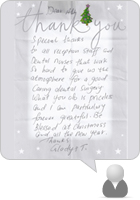 Dear all,
thank you
Special thanks
to all reception staff and
Dental nurses that work
so hard to give us the
atmosphere for a good
caring dental surgery
What you do is priceless
and I am
forever grateful. Be
Blessed at Christmas
and in the New year.
Thanks